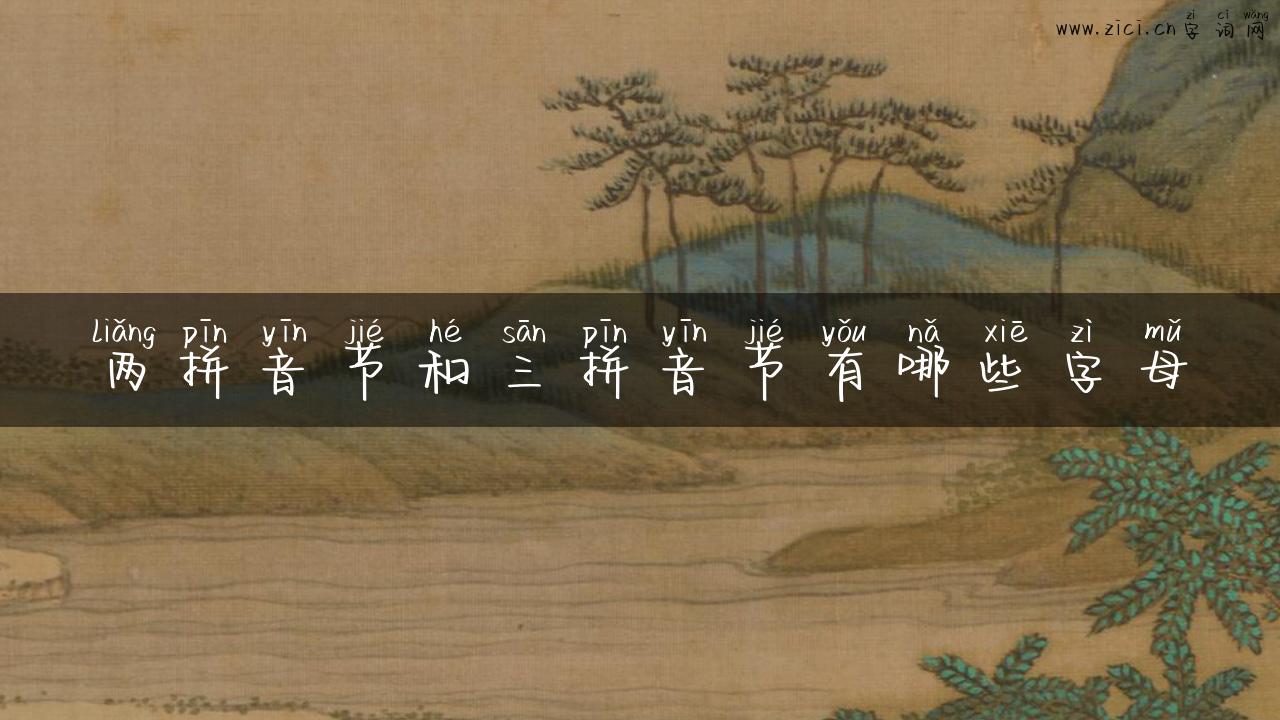 zì cí wǎng
www.zici.cn 字词网
liǎng pīn yīn jié hé sān pīn yīn jié yǒu nǎ xiē zì mǔ
两拼音节和三拼音节有哪些字母